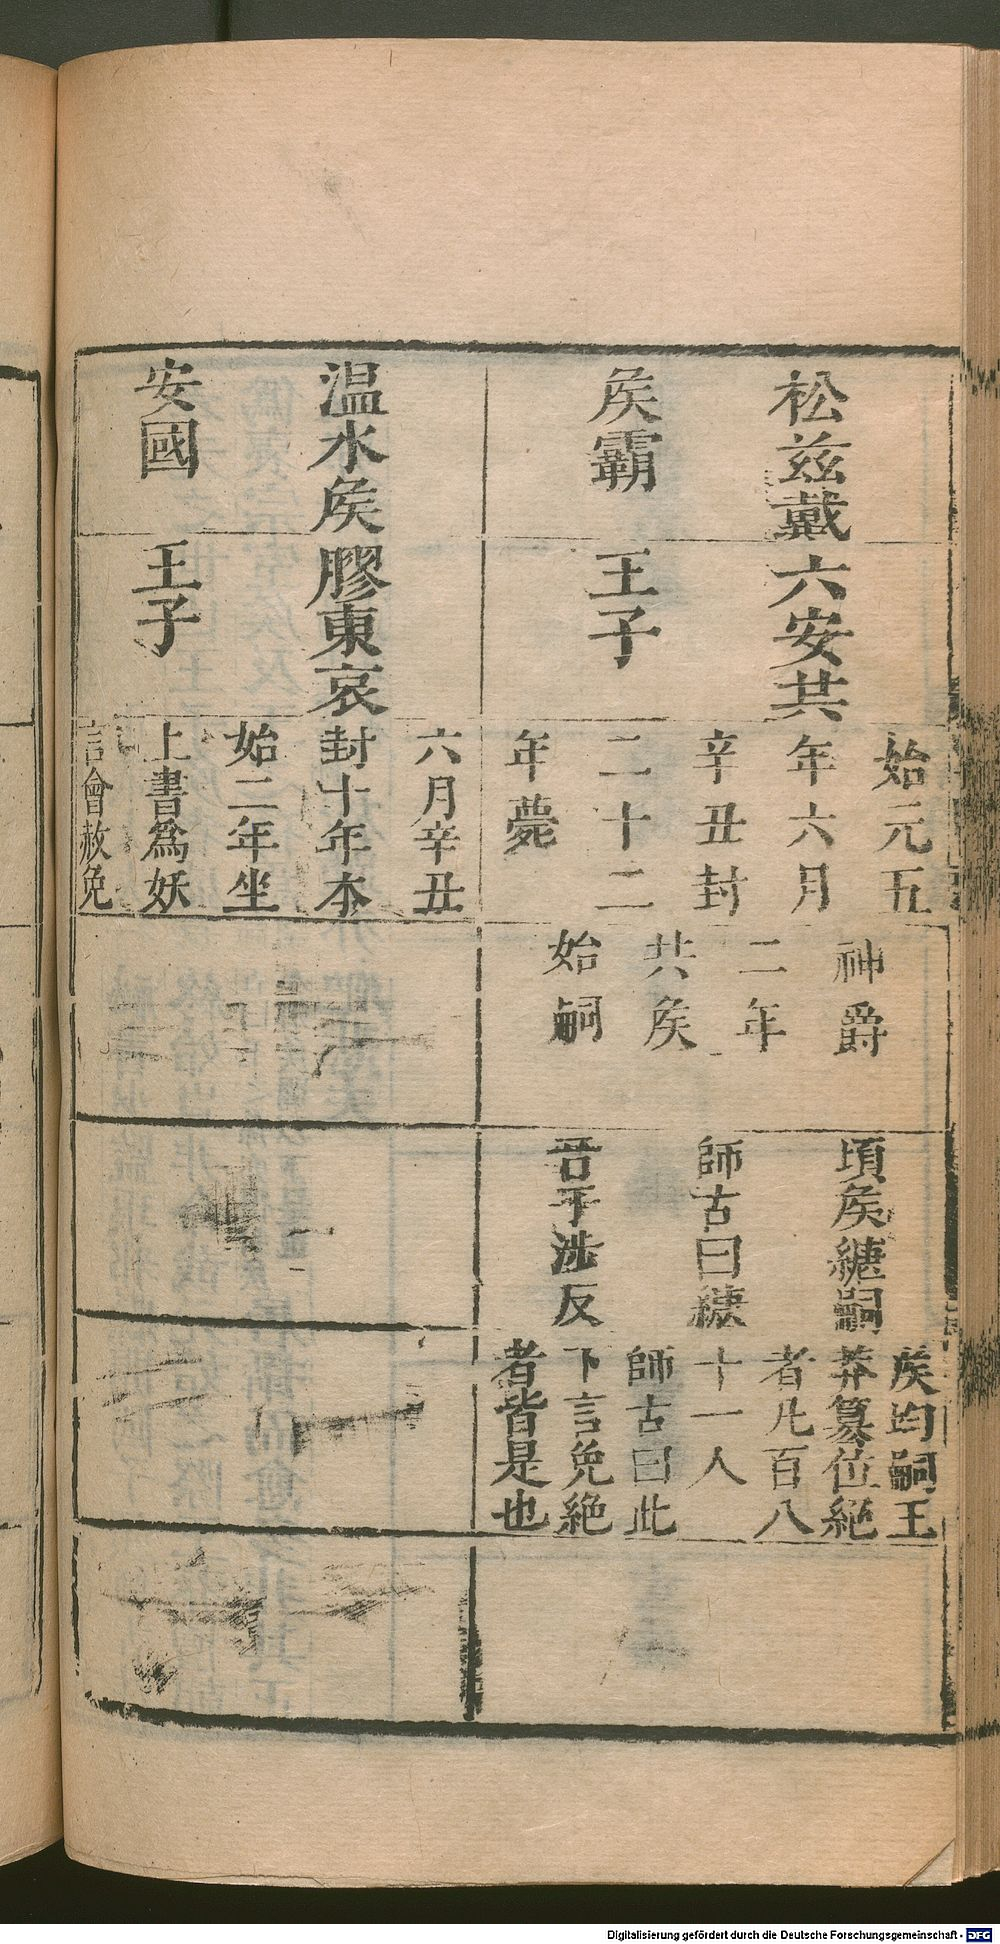 松兹戴
侯霸
六安共
王子
始元五
年六月
辛丑封
二十二
年薨
神爵
二年
共侯
始嗣
頃侯䌏嗣
師古曰䌏
音于涉反
侯均嗣王
莽簒位絶
者凡百八
十一人
師古曰此
下言免絶
者皆是也
温水侯
安國
膠東哀
王子
六月辛丑
封十年本
始二年坐
上書爲妖
言會赦免
Digitalisierung gefördert durch die Deutsche Forschungsgemeinschaft - DFG